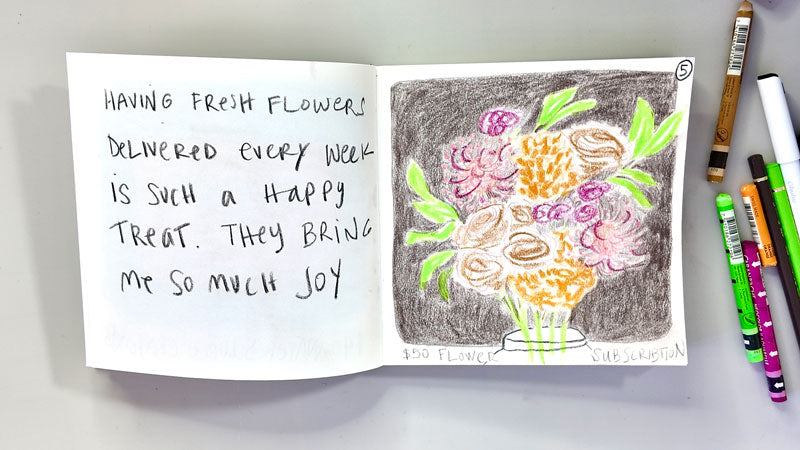 HAVING FRESH FLOWERS
DELIVERED EVERY WEEK
IS SUCH A HAPPY
TREAT. THEY BRING
ME SO MUCH JOY
5
$50 FLOWER SUBSCRIBTION